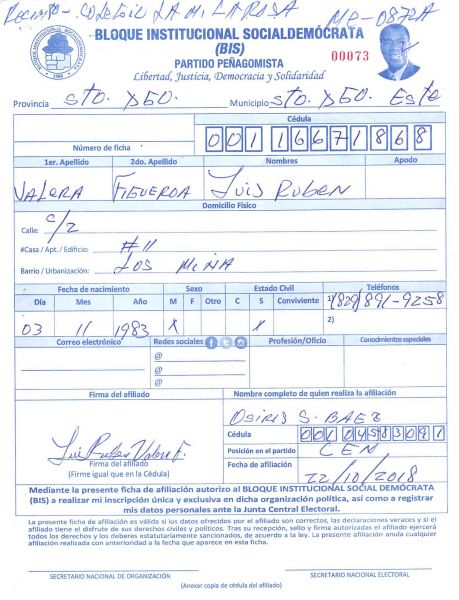 Recinto - COLEGIO LA MILAROSA MP-0872A
BLOQUE INSTITUCIONAL SOCIALDEMÓCRATA
(BIS)
00073
PARTIDO PEÑAGOMISTA
Libertad, Justicia, Democracia y Solidaridad
Provincia Sto. Dgo. Municipio Sto. Dgo. Este
Cédula
Número de ficha 00116671868
1er. Apellido 2do. Apellido Nombres Apodo
VALERA FIGUEROA Luis Ruben
Domicilio Físico
Calle: C/2
#Casa / Apt. / Edificio: #11
Barrio / Urbanización: Los Mina
Fecha de nacimiento Sexo Estado Civil Teléfonos
Día Mes Año M F Otro C S Conviviente 1) (829) 891-9258
03 11 1983 X X 2)
Correo electrónico Redes sociales Profesión/Oficio Conocimientos especiales
@
@
@
Firma del afiliado Nombre completo de quien realiza la afiliación
Osiris S. BAEZ
Cédula 00104583091
Luis Ruben Valera F.
Posición en el partido CEN
Firma del afiliado
(Firme igual que en la Cédula)
Fecha de afiliación 22/10/2018
Mediante la presente ficha de afiliación autorizo al BLOQUE INSTITUCIONAL SOCIAL DEMÓCRATA
(BIS) a realizar mi inscripción única y exclusiva en dicha organización política, así como a registrar
mis datos personales ante la Junta Central Electoral.
La presente ficha de afiliación es válida si los datos ofrecidos por el afiliado son correctos, las declaraciones veraces y si el
afiliado tiene el disfrute de sus derechos civiles y políticos. Tras su recepción, sello y firma autorizada el afiliado ejercerá
todos los derechos y los deberes estatutariamente sancionados, de acuerdo a la ley. La presente afiliación anula cualquier
afiliación realizada con anterioridad a la fecha que aparece en esta ficha.
SECRETARIO NACIONAL DE ORGANIZACIÓN SECRETARIO NACIONAL ELECTORAL
(Anexar copia de cédula del afiliado)